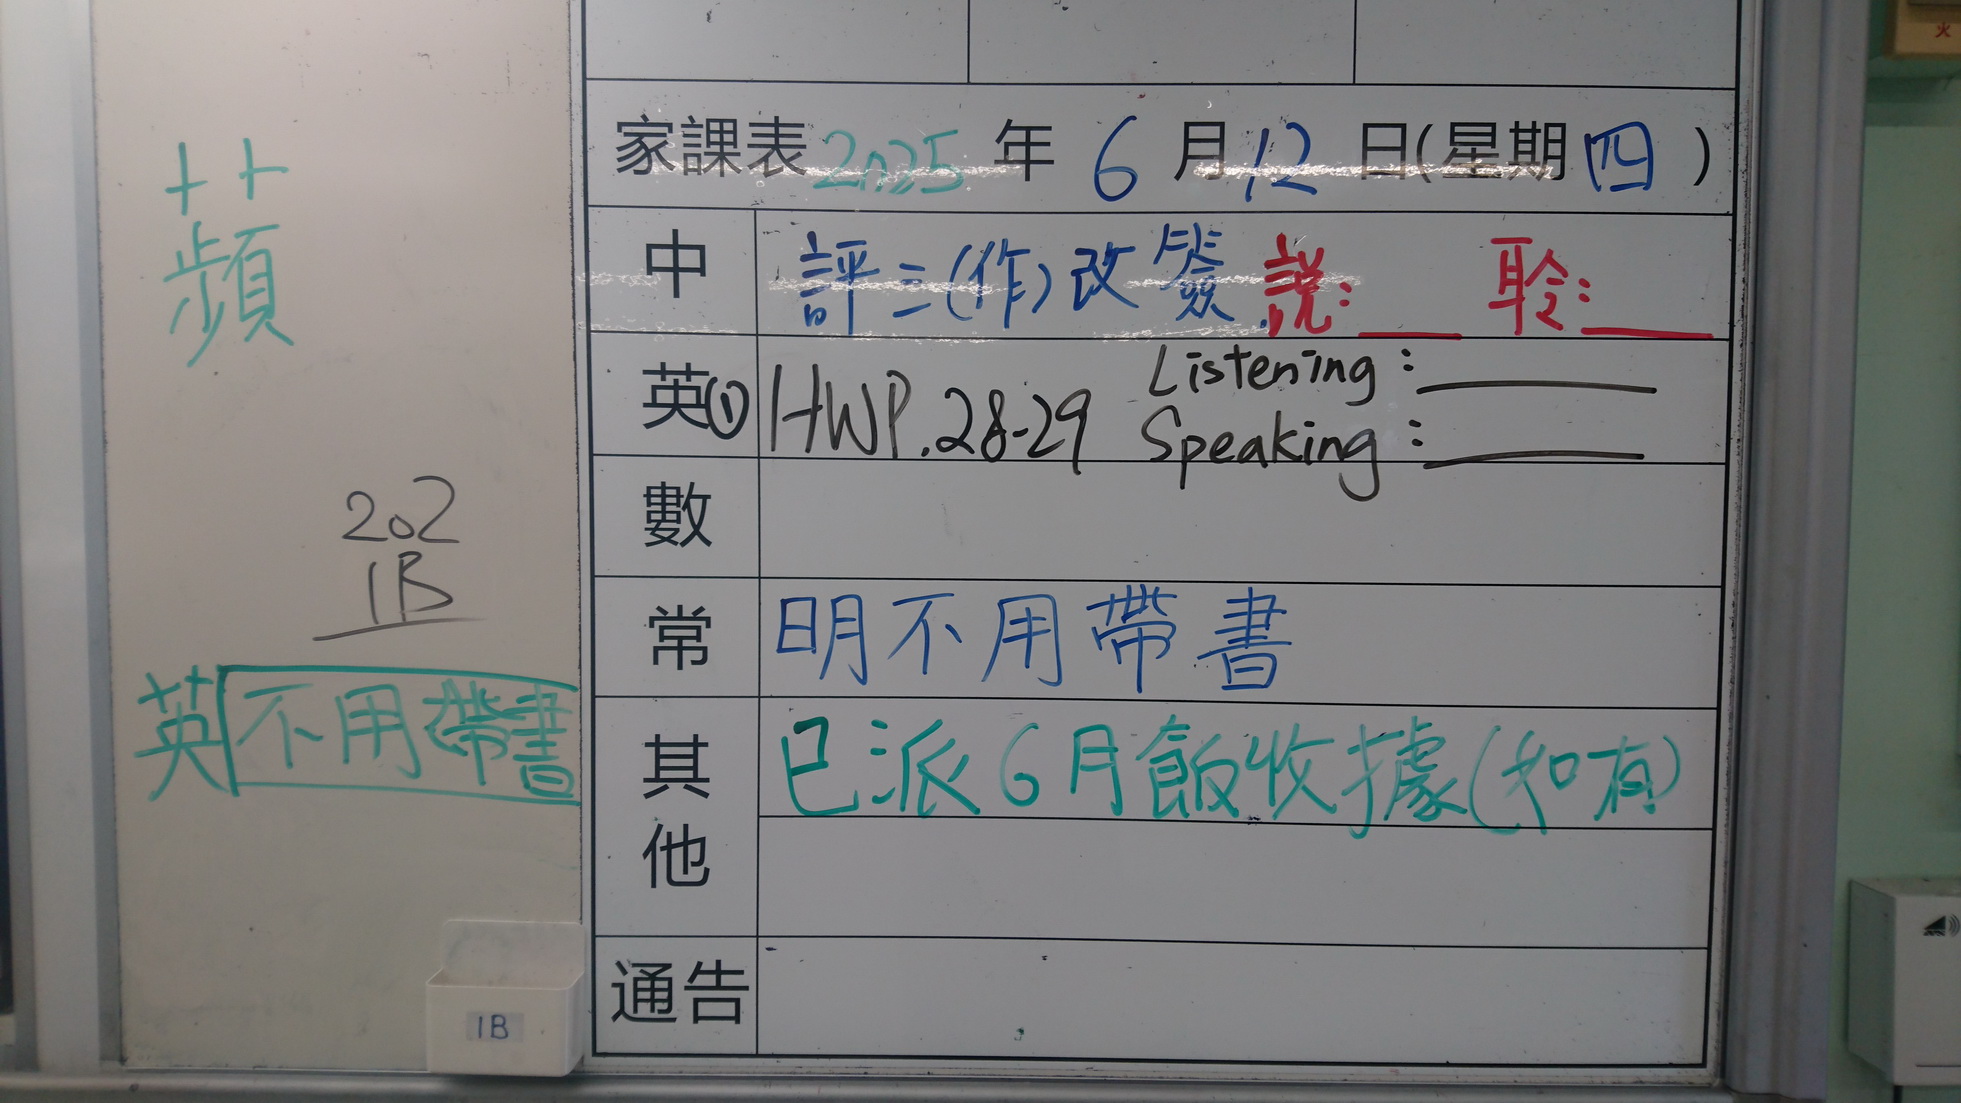 蘋
202
1B
英 不用帶書
1B
家課表 2025 年 6 月 12 日(星期四)
中 評三(作)改簽 說:___ 聆:___
英 (1) HWP.28-29 Listening:___
Speaking:___
數
常 明不用帶書
其他 已派6月飯收據(如有)
通告
火